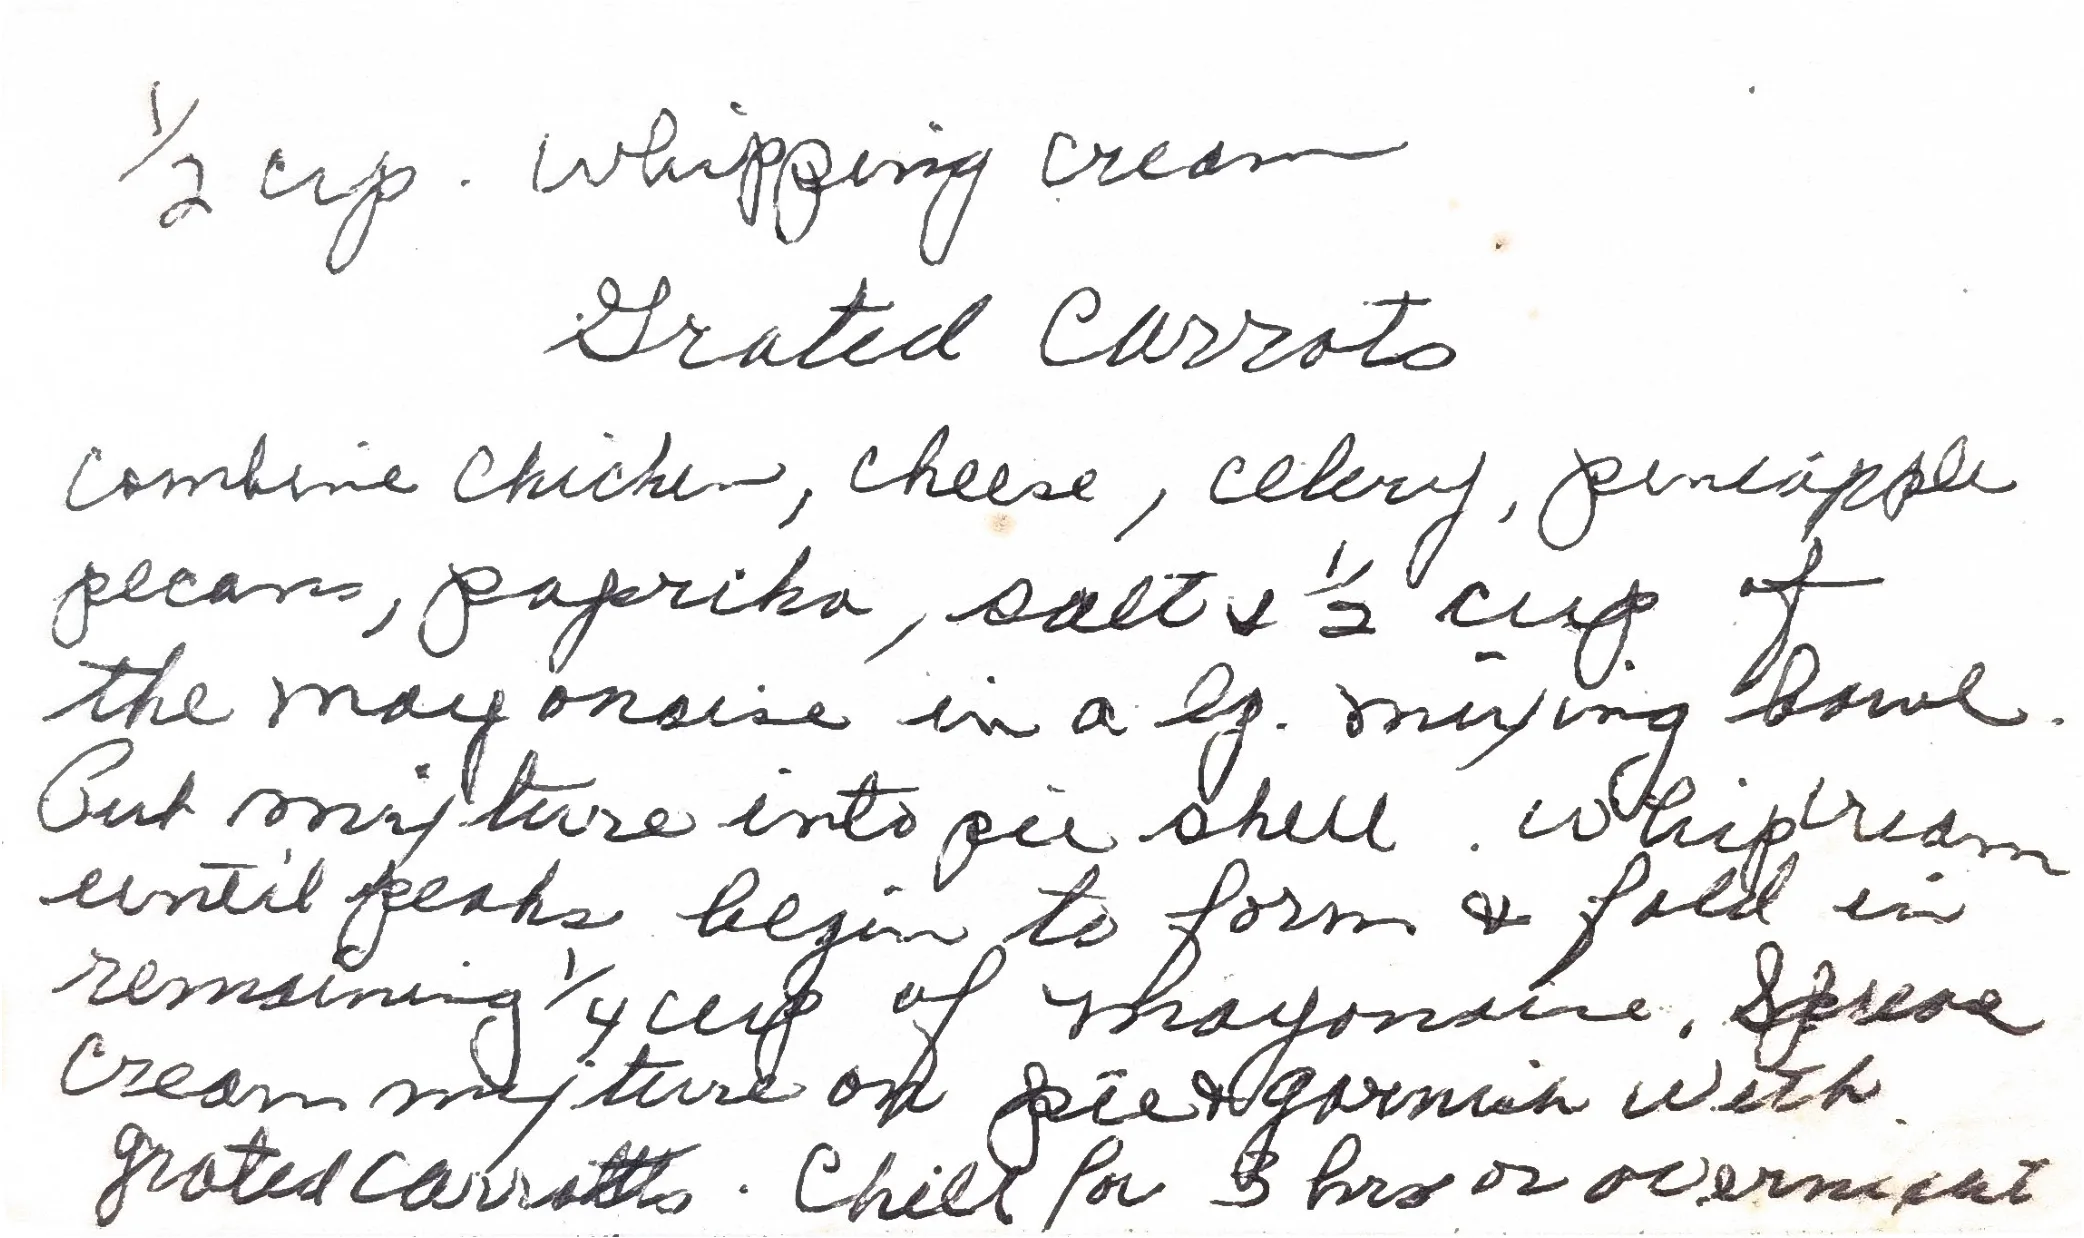 1/2 cup. whipping cream
Grated Carrots
combine chicken, cheese, celery, pineapple
pecans, paprika, salt & 1/2 cup of
the mayonaise in a lg. mixing bowl.
Put mixture into pie shell. Whip cream
until peaks begin to form & fold in
remaining 1/4 cup of mayonaise.
cream mixture on pie & garnish with
grated carrotts. Chill for 3 hrs or overnight